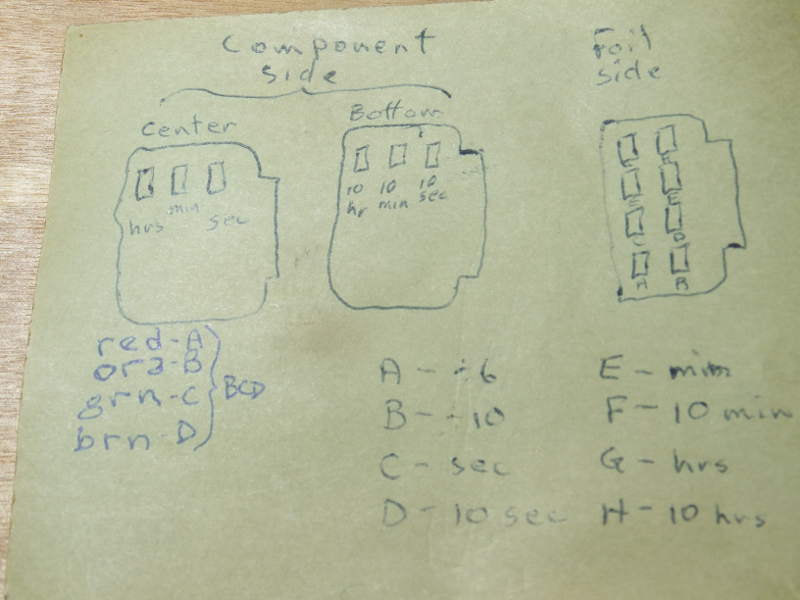 Component
side
Foil
side
Center
Bottom
hrs
min
sec
10
hr
10
min
10
sec
E
C
D
A
B
red-A
ora-B
grn-C
brn-D
BCD
A - ÷6
B - ÷10
C - sec
D - 10 sec
E - min
F - 10 min
G - hrs
H - 10 hrs